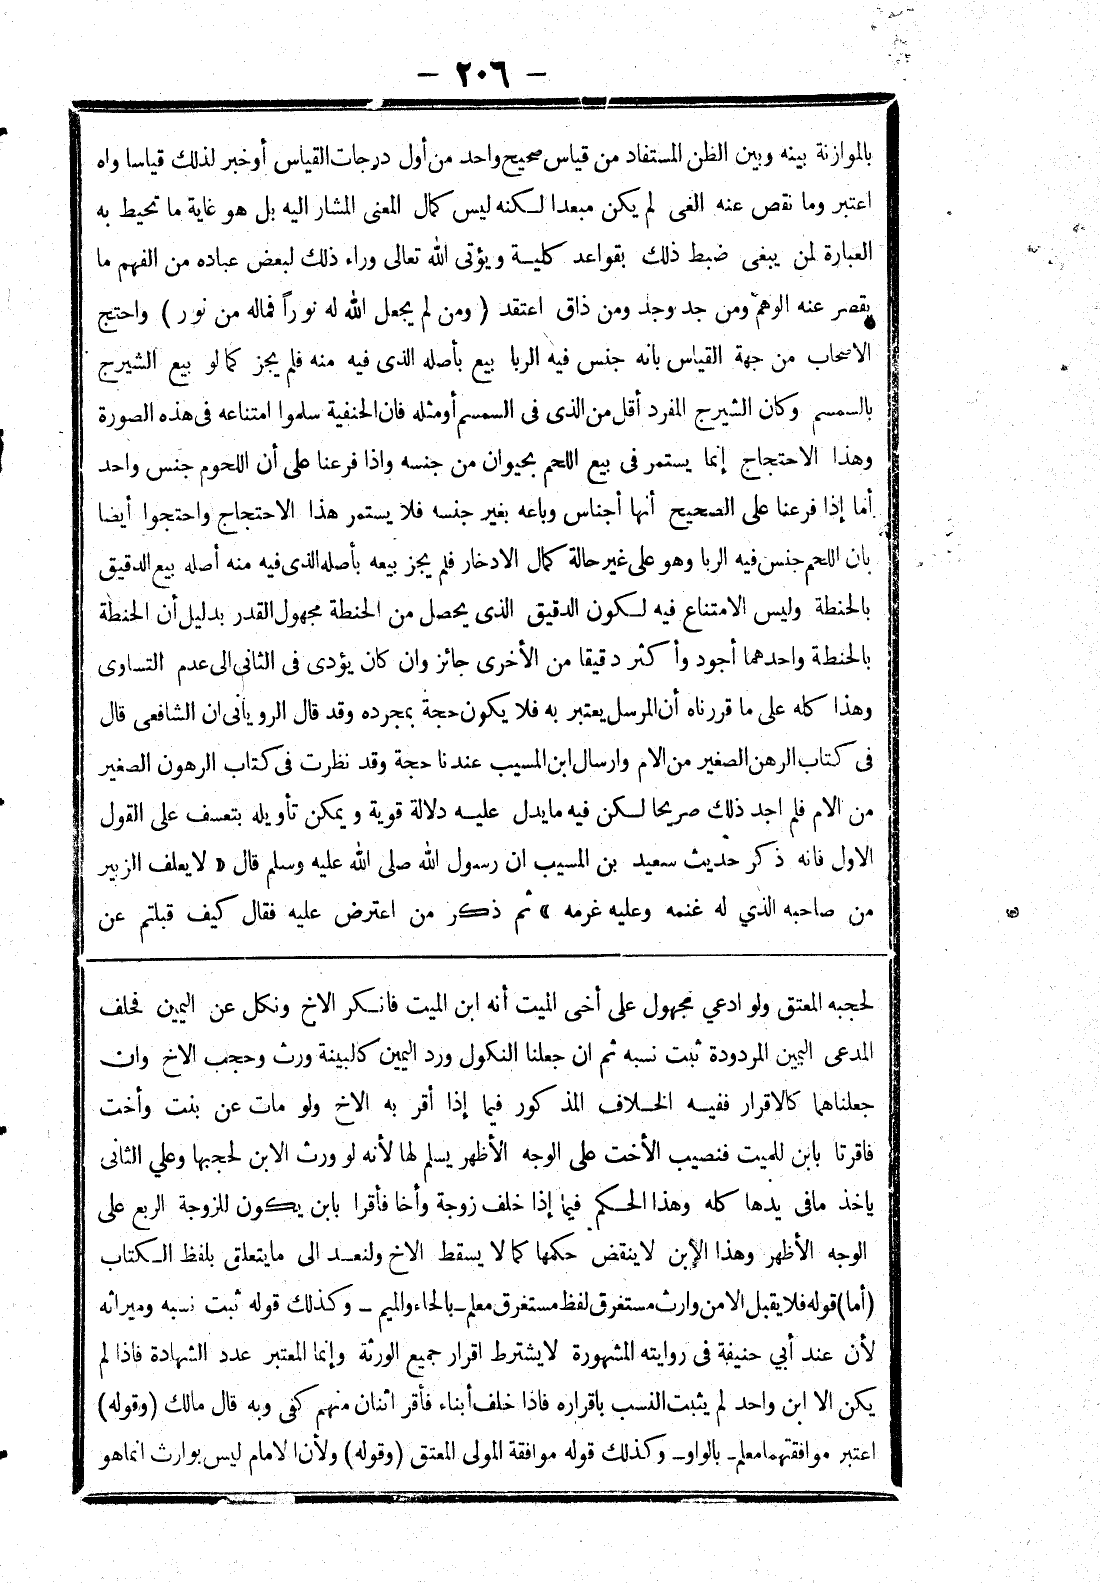 - ٢٠٦ -
بالموازنة بينه وبين الظن المستفاد من قياس صحيح واحد من أول درجات القياس أوخبر لذلك قياسا واه
اعتبر وما نقص عنه الغى لم يكن مبعدا لكنه ليس كمال المعنى المشار اليه بل هو غاية ما تحيط به
العبارة لمن يبغى ضبط ذلك بقواعد كلية ويؤتى الله تعالى وراء ذلك لبعض عباده من الفهم ما
يقصر عنه الوهم ومن جد وجد ومن ذاق اعتقد ( ومن لم يجعل الله له نوراً فماله من نور ) واحتج
الاصحاب من جهة القياس بانه جنس فيه الربا بيع بأصله الذى فيه منه فلم يجز كما لو بيع الشيرج
بالسمسم وكان الشيرج المفرد أقل من الذى فى السمسم أومثله فان الحنفية سلموا امتناعه فى هذه الصورة
وهذا الاحتجاج إنما يستمر فى بيع اللحم بحيوان من جنسه واذا فرعنا على أن اللحوم جنس واحد
أما إذا فرعنا على الصحيح أنها أجناس وباعه بغير جنسه فلا يستمر هذا الاحتجاج واحتجوا أيضا
بان اللحم جنس فيه الربا وهو على غير حالة كمال الادخار فلم يجز بيعه بأصله الذى فيه منه أصله بيع الدقيق
بالحنطة وليس الامتناع فيه لكون الدقيق الذى يحصل من الحنطة مجهول القدر بدليل أن الحنطة
بالحنطة واحدهما أجود وأكثر دقيقا من الأخرى جائز وان كان يؤدى فى الثانى الى عدم التساوى
وهذا كله على ما قررناه أن المرسل يعتبر به فلا يكون حجة بمجرده وقد قال الرويانى ان الشافعى قال
فى كتاب الرهن الصغير من الام وارسال ابن المسيب عندنا حجة وقد نظرت فى كتاب الرهون الصغير
من الام فلم اجد ذلك صريحا لكن فيه مايدل عليه دلالة قوية ويمكن تأويله بتعسف على القول
الاول فانه ذكر حديث سعيد بن المسيب ان رسول الله صلى الله عليه وسلم قال « لايعلف الزبير
من صاحبه الذي له غنمه وعليه غرمه » ثم ذكر من اعترض عليه فقال كيف قبلتم عن
لحجبه المعتق ولو ادعي مجهول على أخى الميت أنه ابن الميت فانكر الاخ ونكل عن اليمين فحلف
المدعى اليمين المردودة ثبت نسبه ثم ان جعلنا النكول ورد اليمين كالبينة ورث وحجب الاخ وان
جعلناهما كالاقرار ففيه الخلاف المذكور فيما إذا أقر به الاخ ولو مات عن بنت وأخت
فاقرتا بابن للميت فنصيب الأخت على الوجه الأظهر يسلم لها لأنه لو ورث الابن لحجبها وعلي الثانى
ياخذ مافى يدها كله وهذا الحكم فيما إذا خلف زوجة وأخا فأقرا بابن يكون للزوجة الربع على
الوجه الأظهر وهذا الإبن لاينقض حكمها كما لا يسقط الاخ ولنعد الى مايتعلق بلفظ الكتاب
(أما) قوله فلا يقبل الا من وارث مستغرق لفظ مستغرق معلم - بالحاء والميم - وكذلك قوله ثبت نسبه وميراثه
لأن عند أبي حنيفة فى روايته المشهورة لايشترط اقرار جميع الورثة وإنما المعتبر عدد الشهادة فاذا لم
يكن الا ابن واحد لم يثبت النسب باقراره فاذا خلف أبناء فأقر اثنان منهم كفى وبه قال مالك (وقوله)
اعتبر موافقتهما معلم - بالواو - وكذلك قوله موافقة المولى المعتق (وقوله) ولأن الامام ليس بوارث انماهو